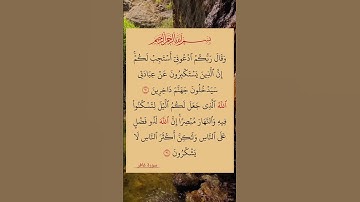 بسم الله الرحمن الرحيم
وَقَالَ رَبُّكُمُ ٱدۡعُونِيٓ أَسۡتَجِبۡ لَكُمۡۚ
إِنَّ ٱلَّذِينَ يَسۡتَكۡبِرُونَ عَنۡ عِبَادَتِي
سَيَدۡخُلُونَ جَهَنَّمَ دَاخِرِينَ ٦٠
ٱللَّهُ ٱلَّذِي جَعَلَ لَكُمُ ٱلَّيۡلَ لِتَسۡكُنُواْ
فِيهِ وَٱلنَّهَارَ مُبۡصِرًاۚ إِنَّ ٱللَّهَ لَذُو فَضۡلٍ
عَلَى ٱلنَّاسِ وَلَٰكِنَّ أَكۡثَرَ ٱلنَّاسِ لَا
يَشۡكُرُونَ ٦١
سورة غافر